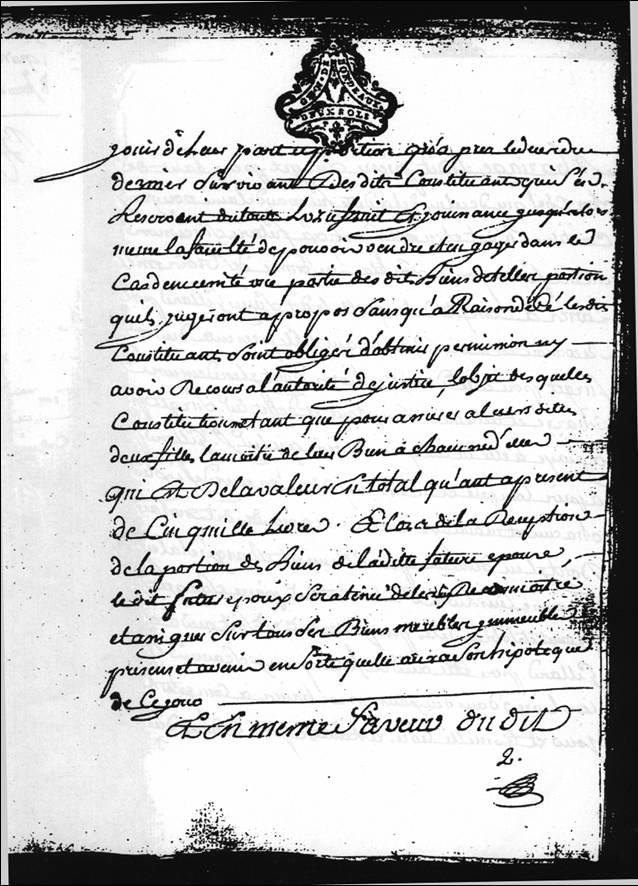 GEN. DE BORDEAUX
DEUX SOLS
jouir de leur part et portion qu'a pres le deces du
dernier Survivant Desdits Constituants qui Se
Reservent du tout L'uzufruit Et jouissance jusqu'alors
meme la faculté de pouvoir vendre et en gager dans le
Cas de necessité une partie des dit Biens de telles portion
quils jugeront a propos Sans qu'a Raison de Cé les dits
Constituants Soint obligés d'obtenir permission ny
avoir Recours a l'autorité de justice, lobjet des quelles
Constitutions étant que pour assurer a leurs dites
deux filles la moitié de leur Bien a chacune d'elles
qui Est De la valeur En total qu'ant a present
de Cinq mille Livres. Et lors de la Reception
de la portion des Biens de laditte future epouse,
le dit futur epoux Sera tenu de les Reconnoitre
et assigner Sur tous Ses Biens meubles immeubles
presens et avenir en Sorte quelle aura Son hipoteque
de Ce jour
Et En meme faveur du dit
2.